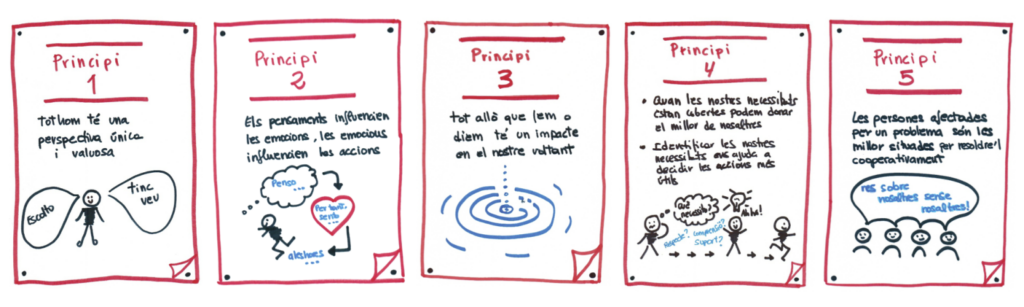 Principi
1
Tothom té una
perspectiva única
i valuosa
Escolto
tinc
veu
Principi
2
Els pensaments influencien
les emocions, les emocions
influencien les accions
Penso
...
Per tant,
sento
...
aleshores
...
Principi
3
Tot allò que fem o
diem té un impacte
en el nostre voltant
Principi
4
• Quan les nostres necessitats
estan cobertes podem donar
el millor de nosaltres
• Identificar les nostres
necessitats ens ajuda a
decidir les accions més
útils
Què
necessito?
Ahà!
Respecte? comprensió?
Suport?
Principi
5
Les persones afectades
per un problema són les
millor situades per resoldre'l
cooperativament
res sobre
nosaltres sense
nosaltres!